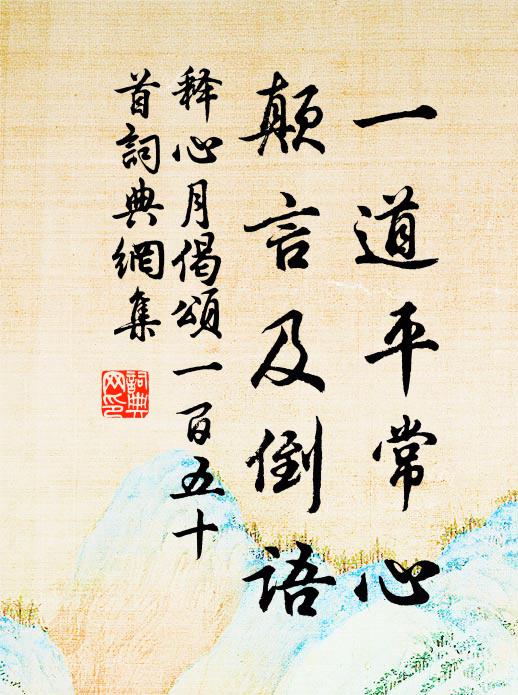 一道平常心
颠言及倒语
释心月偈颂一百五十
首詞典網集
詞典
网印